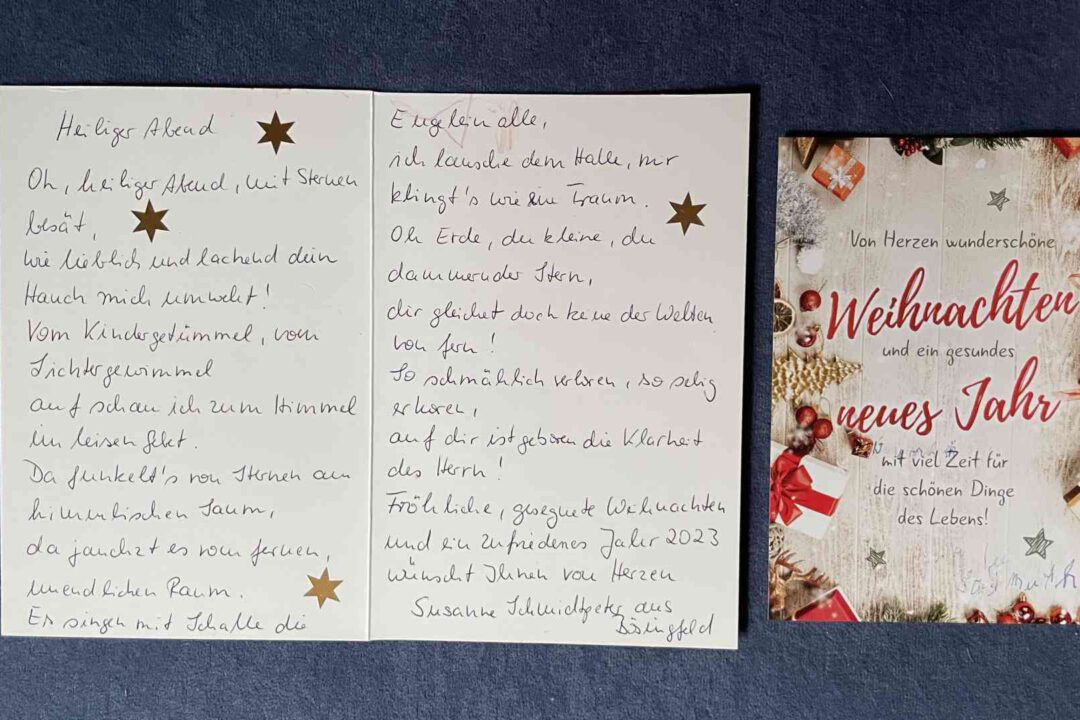 Heiliger Abend
Oh, heiliger Abend, mit Sternen
besät,
wie lieblich und lachend dein
Hauch mich umweht!
Vom Kindergetümmel, vom
Lichtergewimmel
auf schau ich zum Himmel
im leisen Gebet.
Da funkelt's von Sternen am
himmlischen Saum,
da jauchzt es vom fernen,
unendlichen Raum.
Es singen mit Schalle die
Engelein alle,
ich lausche dem Halle, mir
klingt's wie ein Traum.
Oh Erde, du kleine, du
dämmernder Stern,
dir gleichet doch keine der Welten
von fern!
So schmählich verloren, so selig
erkoren,
auf dir ist geboren die Klarheit
des Herrn!
Fröhliche, gesegnete Weihnachten
und ein zufriedenes Jahr 2023
wünscht Ihnen von Herzen
Susanne Schmidtpeter aus
Bösingfeld
Von Herzen wunderschöne
Weihnachten
und ein gesundes
neues Jahr
mit viel Zeit für
die schönen Dinge
des Lebens!